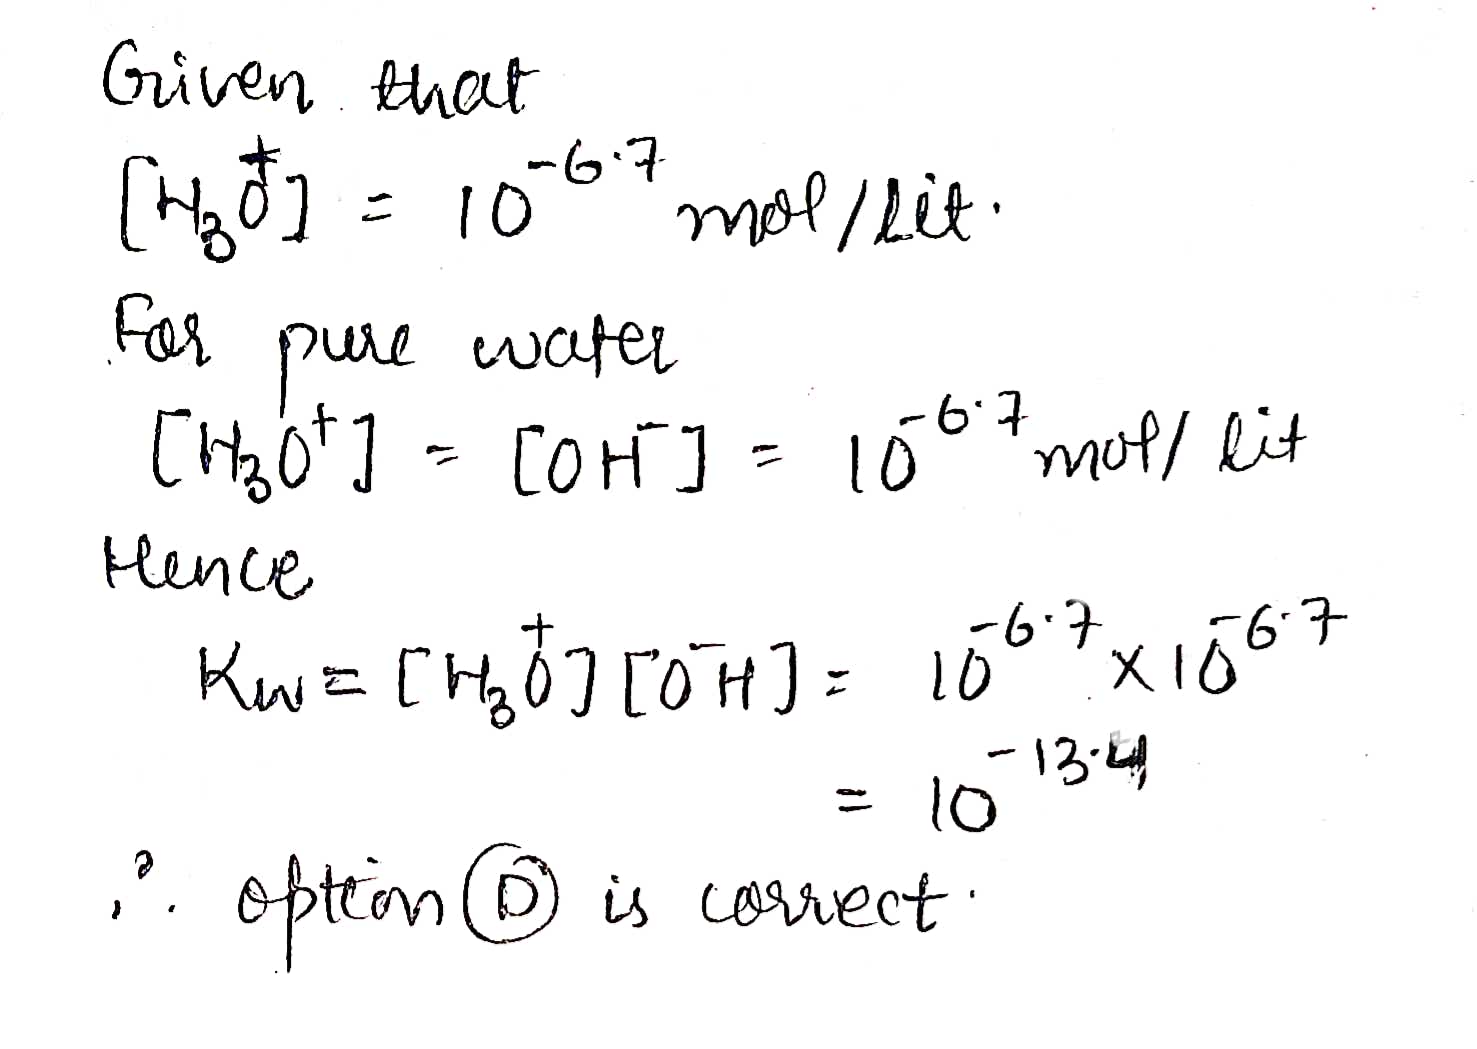 Given that
[H₃O⁺] = 10⁻⁶·⁷ mol/lit.
For pure water
[H₃O⁺] = [OH⁻] = 10⁻⁶·⁷ mol/lit
Hence
Kw = [H₃O⁺] [OH⁻] = 10⁻⁶·⁷ × 10⁻⁶·⁷
= 10⁻¹³·⁴
∴ option Ⓓ is correct.